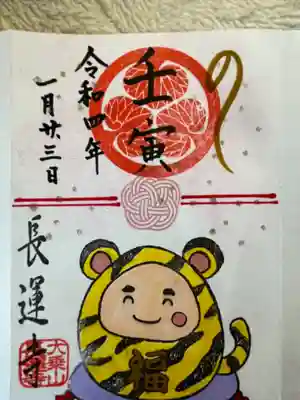 壬寅
令和四年
一月廿三日
長運寺
大乗山
福